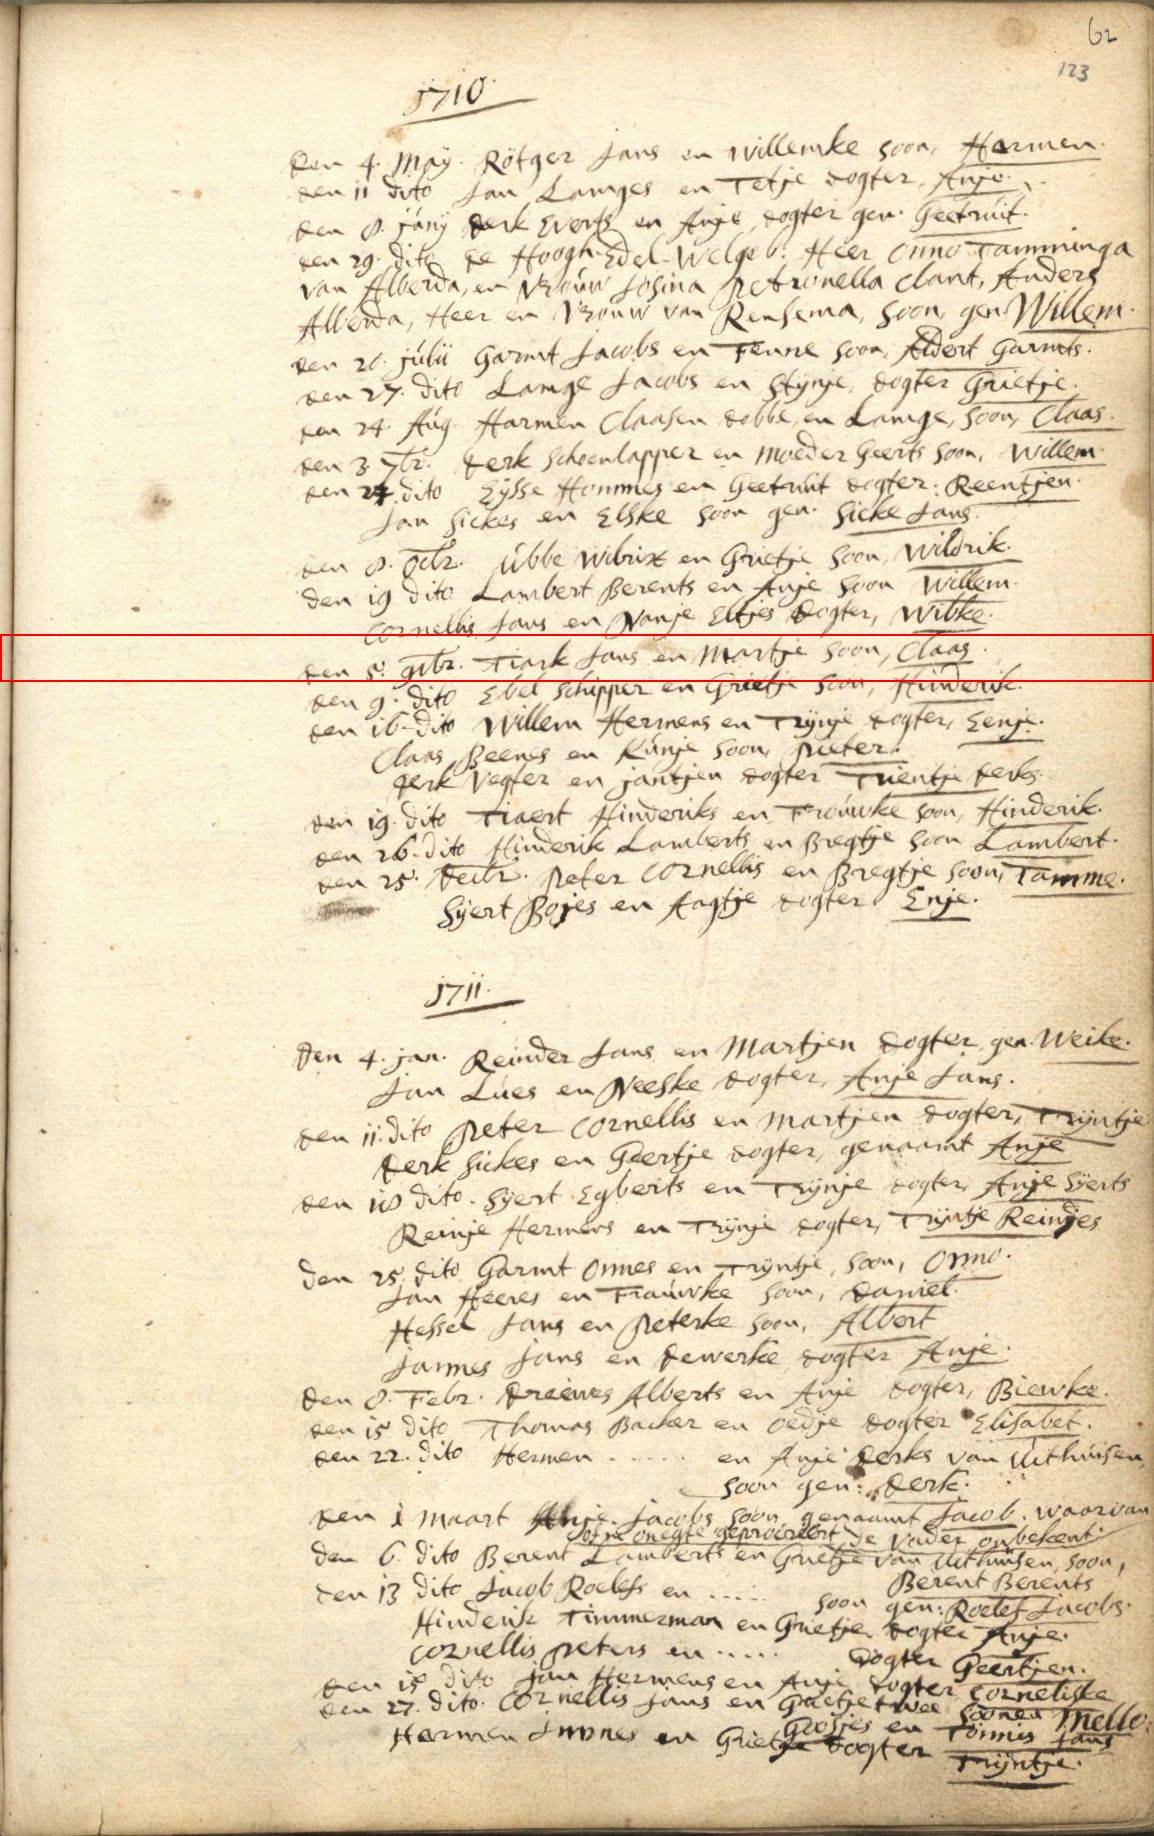 62
123
1710.
den 4. Maÿ. Rötger Jans en Willemke soon, Harmen.
den 11 dito Jan Lamges en Tetje dogter, Anje.
den 8. junÿ Derk Everts en Anje dogter gen. Geetruit.
den 29. dito de Hoogh-Edel-Welgeb: Heer Onno Tamminga
van Alberda, en Vrouw Josina Petronella Clant, Anders
Alberda, Heer en Vrouw van Rensema, soon, gen Willem.
den 20. julii Garmt Jacobs en Fenne soon, Aldert Garmts.
den 27. dito Lamge Jacobs en Stÿnje, dogter Grietje.
den 24. Aug. Harmen Claasen Dobbe, en Lamge, soon, Claas.
den 3. 7br. Derk Schoenlapper en Moeder Geerts soon, Willem.
den 24. dito Eÿsse Hommes en Geetruit dogter. Reentjen.
Jan Sickes en Elske soon gen. Sicke Jans.
den 8. Octbr. Ubbe Wibrix en Grietje soon, Wildrik.
den 19 dito Lambert Berents en Anje soon Willem.
Cornellis Jans en Nanje Eltjes dogter, Wibke.
den 5. 9tbr. Tiark Jans en Martje soon, Claas.
den 9. dito Ebel Schipper en Grietje soon, Hinderik.
den 16. dito Willem Hermens en Trÿnje dogter, Eenje.
Claas Beenes en Kunje soon, Pieter.
Derk Vegter en jantjen dogter Trientje Derks.
den 19. dito Tiaert Hinderiks en Frouwke soon, Hinderik.
den 26. dito Hinderik Lamberts en Bregtje soon Lambert.
den 25. Decbr. Peter Cornellis en Bregtje soon, Tamme.
Sÿert Bojes en Aagtje dogter Enje.
1711.
Den 4. jan. Reinder Jans en Martjen dogter, gen. Weike.
Jan Lues en Neeske dogter, Anje Jans.
den 11. dito Peter Cornellis en Martjen dogter, Trÿntje
Derk Sickes en Geertje dogter, genaamt Anje
den 18 dito. Sÿert Egberts en Trÿnje dogter, Anje Sÿerts
Reinje Hermens en Trÿnje dogter, Trÿntje Reindjes
den 25. dito Garmt Onnes en Trÿntje, soon, Onno.
Jan Heeres en Frauwke soon, Daniel.
Hessel Jans en Peterke soon, Albert
Jannes Jans en Dewerke dogter Anje.
den 8. Febr. Dreewes Alberts en Anje dogter, Biewke.
den 15 dito Thomas Backer en Oedje dogter Elisabet.
den 22. dito Hermen ..... en Anje Derks van Uithuisen,
soon gen: Derk.
den 1 Maart Anje Jacobs soon genaamt Jacob. waarvan
of ne onegte geprocreert de vader onbekent
den 6. dito Berent Lamberts en Grietje van Uithuisen, soon,
Berent Berents
den 13 dito Jacob Roelefs en ..... soon gen: Roelef Jacobs.
Hinderik Timmerman en Grietje dogter Anje.
Cornellis Peters en ..... Dogter Geertjen.
den 15 dito jan Hermens en Anje dogter Corneliske
den 27. dito. Cornellis Jans en Grietje twee soonen Mello.
Goosjes en Tonnis Jans
Harmen en Grietje dogter
Trÿntje.